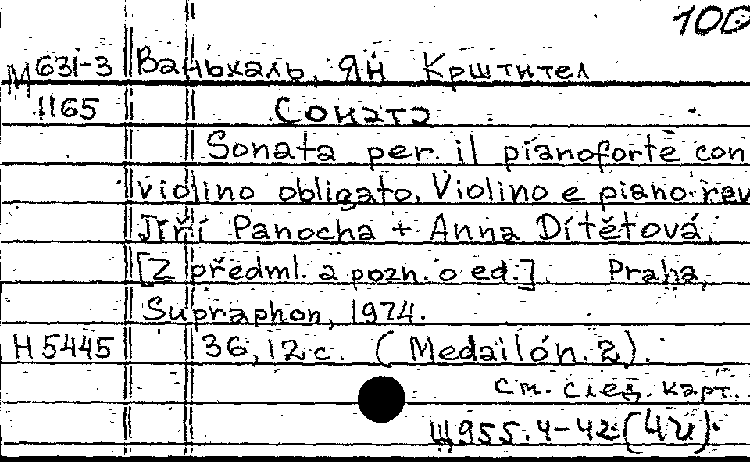 100
М631-3 Ваньхаль, Ян Крштител
1165 Соната
Sonata per il pianoforte con
violino obligato. Violino e piano. rev
Jiří Panocha + Anna Dítětová.
[Z předml. a pozn. o ed.]. Praha,
Supraphon, 1974.
Н5445 36, 12 с. (Medailón. 2).
см. след. карт.
Щ955.4-42(4Ч)